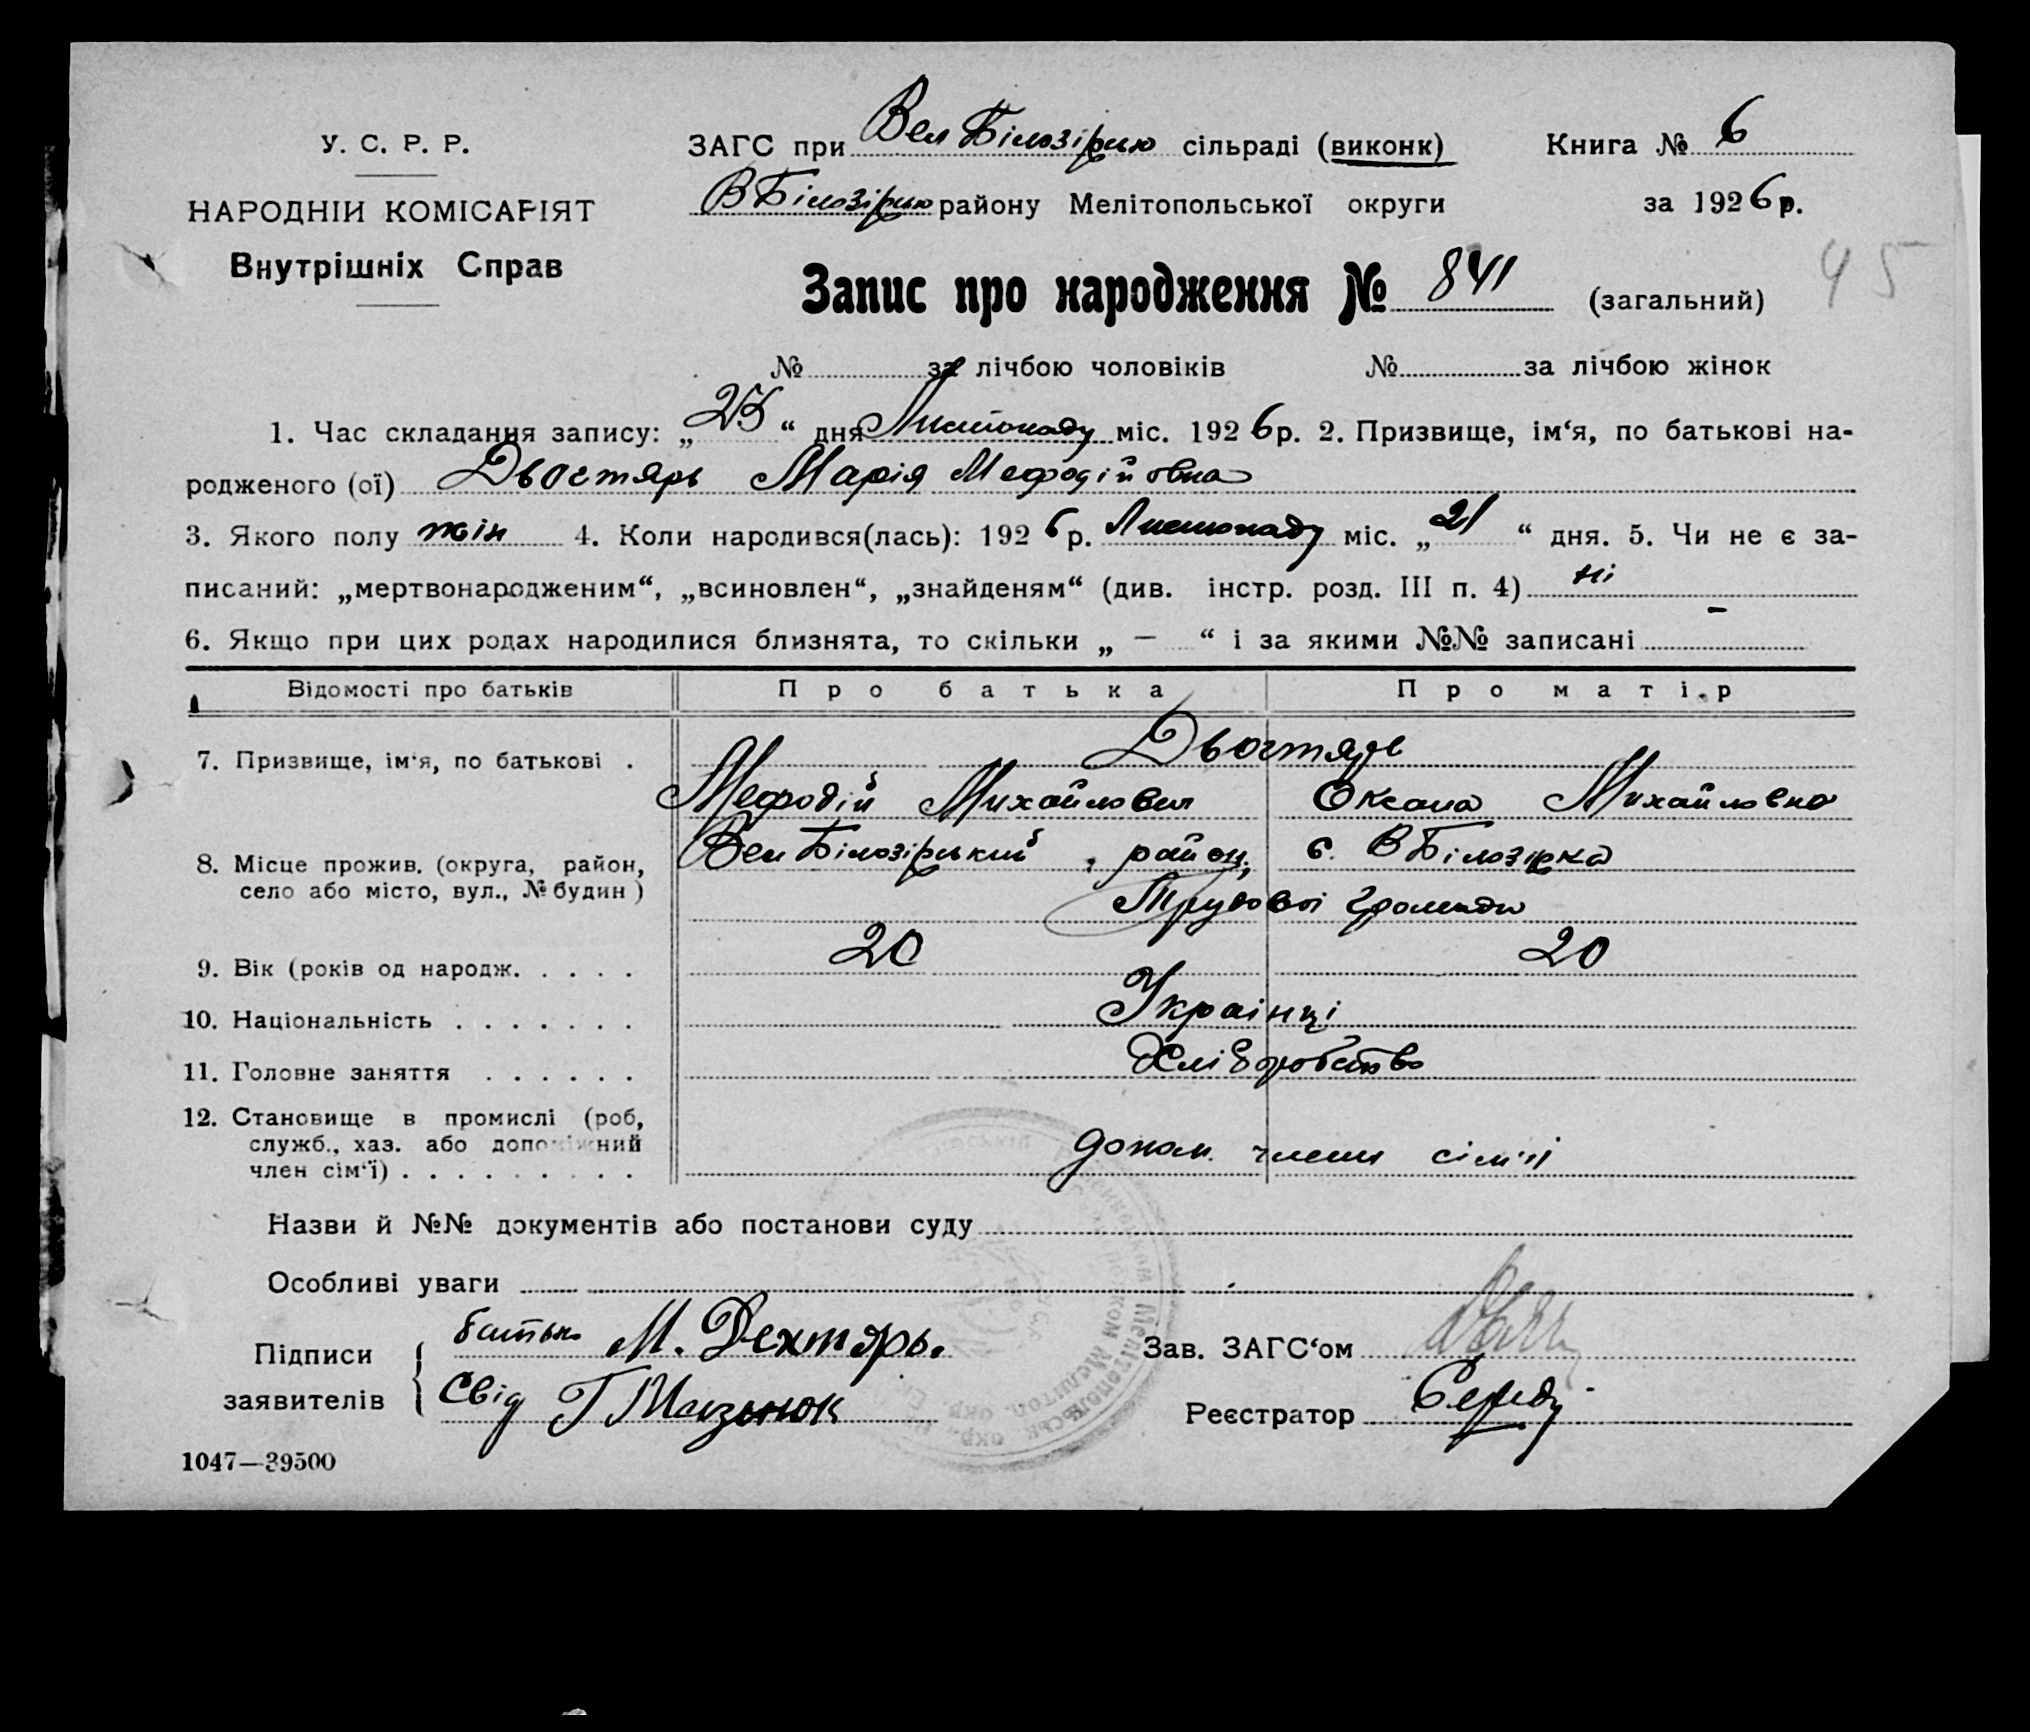 У. С. Р. Р.
НАРОДНІЙ КОМІСАРІЯТ
Внутрішніх Справ
ЗАГС при Вел Білозірцю сільраді (виконк) Книга № 6
ВБілозірцю району Мелітопольської округи за 1926 р.
Запис про народження № 841 (загальний)
45
№ за лічбою чоловіків № за лічбою жінок
1. Час складання запису: „25“ дня Листопаду міс. 1926 р. 2. Призвище, ім‘я, по батькові на-
родженого (ої) Двохтярь Марія Мефодійовна
3. Якого полу жін 4. Коли народився(лась): 1926 р. Листопаду міс. „21“ дня. 5. Чи не є за-
писаний: „мертвонародженим“, „всиновлен“, „знайденям“ (див. інстр. розд. III п. 4) ні
6. Якщо при цих родах народилися близнята, то скільки „ — “ і за якими №№ записані –
Відомості про батьків Про батька Про матір
7. Призвище, ім‘я, по батькові . Двохтярь
Мефодій Михайлович Оксана Михайловна
8. Місце прожив. (округа, район, Вел Білозірський район, с. ВБілозірка
село або місто, вул., № будин ) Трудової громади
9. Вік (років од народж. . . . . 20 20
10. Національність . . . . . . . Українці
11. Головне заняття . . . . . . Хліборобство
12. Становище в промислі (роб,
служб., хаз. або допоміжний
член сім‘ї) . . . . . . . . . допом. члени сім'ї
Назви й №№ документів або постанови суду
Особливі уваги
Підписи заявителів батько М. Дехтярь.
Свід Г
Зав. ЗАГС‘ом
Реєстратор
1047—39500